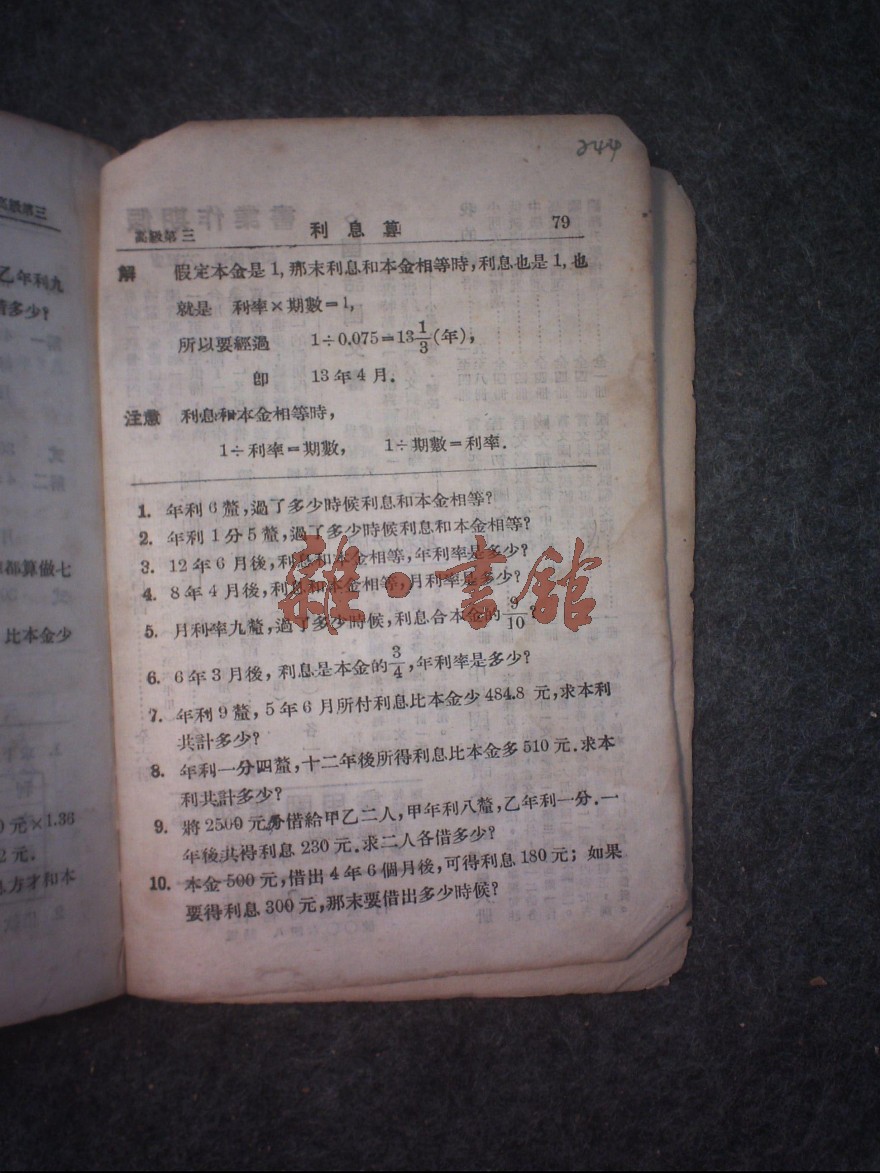 244
高級第三 利息算 79
解 假定本金是1,那末利息和本金相等時,利息也是1,也
就是 利率×期數=1,
所以要經過 1÷0.075=13 1/3(年),
卽 13年4月.
注意 利息和本金相等時,
1÷利率=期數, 1÷期數=利率.
1. 年利6釐,過了多少時候利息和本金相等?
2. 年利1分5釐,過了多少時候利息和本金相等?
3. 12年6月後,利息和本金相等,年利率是多少?
4. 8年4月後,利息和本金相等,月利率是多少?
5. 月利率九釐,過了多少時候,利息合本金的 9/10?
6. 6年3月後,利息是本金的 3/4,年利率是多少?
7. 年利9釐,5年6月所付利息比本金少484.8元,求本利
共計多少?
8. 年利一分四釐,十二年後所得利息比本金多510元.求本
利共計多少?
9. 將2500元分借給甲乙二人,甲年利八釐,乙年利一分.一
年後共得利息230元.求二人各借多少?
10. 本金500元,借出4年6個月後,可得利息180元;如果
要得利息300元,那末要借出多少時候?
高級第三
乙年利九
多少?
都算做七
比本金少
元×1.36
2元.
息方才和本
雜·書館